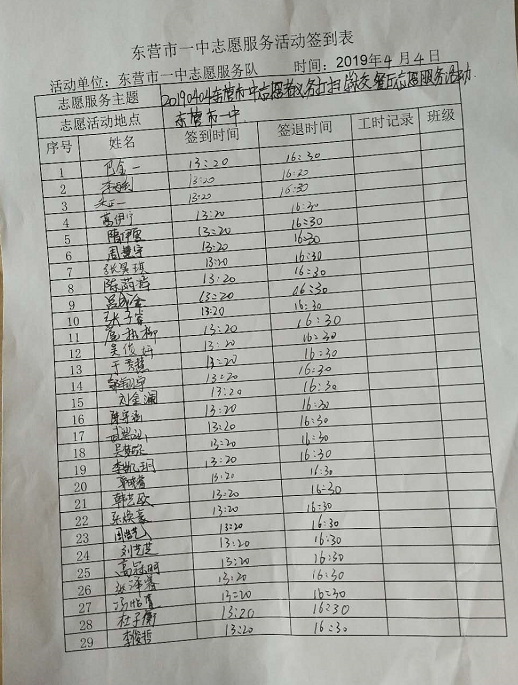 东营市一中志愿服务活动签到表
活动单位：东营市一中志愿服务队 时间：2019年4月4日
志愿服务主题 20190404东营市一中志愿者义务打扫餐厅志愿服务活动
志愿活动地点 东营市一中
序号 姓名 签到时间 签退时间 工时记录 班级
1 13:20 16:30
2 13:20 16:20
3 13:20 16:30
4 高伊宁 13:20 16:30
5 13:20 16:30
6 周慧宇 13:20 16:30
7 张昊琪 13:20 16:30
8 陈蔚萍 13:20 16:30
9 吕成金 13:20 16:30
10 张子睿 13:20 16:30
11 13:20 16:30
12 吴俊 13:20 16:30
13 于 13:20 16:30
14 13:20 16:30
15 刘金澜 13:20 16:30
16 13:20 16:30
17 13:20 16:30
18 13:20 16:30
19 李凯玥 13:20 16:30
20 13:20 16:30
21 韩艺欧 13:20 16:30
22 张焕豪 13:20 16:30
23 13:20 16:30
24 刘芝芝 13:20 16:30
25 高冠明 13:20 16:30
26 张泽睿 13:20 16:30
27 13:20 16:30
28 杜子衡 13:20 16:30
29 李俊哲 13:20 16:30